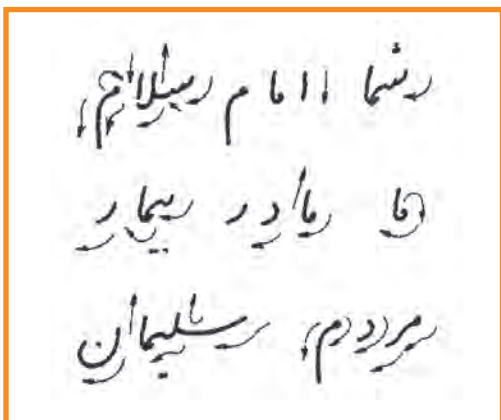 شما امام سلام
ما مادر بیمار
مردم سلیمان